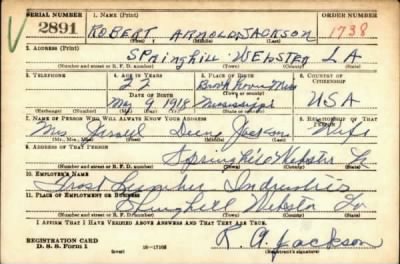 SERIAL NUMBER 1. NAME (Print) ORDER NUMBER
2891 ROBERT ARNOLD JACKSON 1738
(First) (Middle) (Last)
2. ADDRESS (Print)
SPRINGHILL WEBSTER LA
(Number and street or R. F. D. number) (Town) (County) (State)
3. TELEPHONE 4. AGE IN YEARS 5. PLACE OF BIRTH 6. COUNTRY OF CITIZENSHIP
22 Miss
DATE OF BIRTH (Town or county)
May 9, 1918 Mississippi USA
(Exchange) (Number) (Mo.) (Day) (Yr.) (State or country)
7. NAME OF PERSON WHO WILL ALWAYS KNOW YOUR ADDRESS 8. RELATIONSHIP OF THAT PERSON
Mrs. Jackson Wife
(Mr., Mrs., Miss) (First) (Middle) (Last)
9. ADDRESS OF THAT PERSON
Springhill Webster La
(Number and street or R. F. D. number) (Town) (County) (State)
10. EMPLOYER'S NAME
Frost Lumber Industries
11. PLACE OF EMPLOYMENT OR BUSINESS
Springhill Webster La
(Number and street or R. F. D. number) (Town) (County) (State)
I AFFIRM THAT I HAVE VERIFIED ABOVE ANSWERS AND THAT THEY ARE TRUE.
REGISTRATION CARD
D. S. S. Form 1 (over) R. A. Jackson
(Registrant's signature)